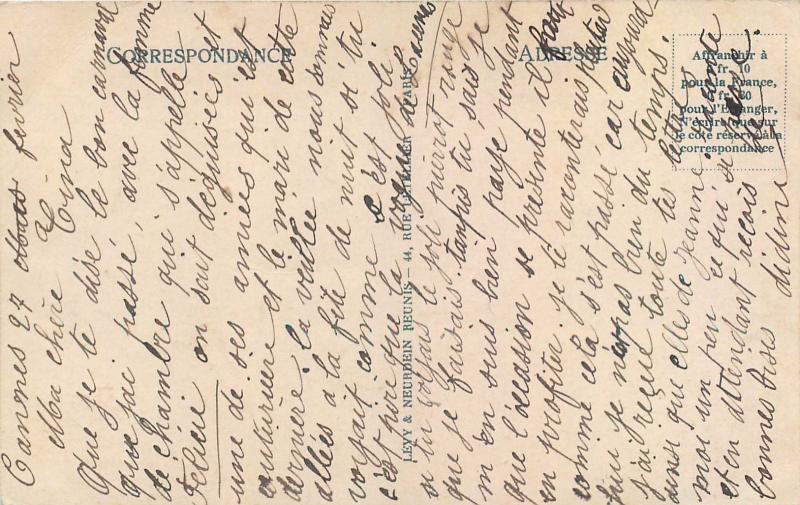 CORRESPONDANCE
ADRESSE
Affranchir à
fr. 10
pour la France,
fr. 30
pour l'Etranger,
N'écrire que sur
le côté réservé à la
correspondance
LEVY & NEURDEIN REUNIS — 44, RUE LETELLIER — PARIS
Cannes 27 Mars février
Ma chère Tina
Que je te dise le bon carnaval
que j'ai passé, avec la femme
de chambre qui s'appelle
Felicie on sait déguisées et
une de ses amies qui est
couturière et le mari de cette
dernière, la veillée nous sommes
allées à la fête de nuit si tu
voyait comme c'est joli
c'est pire que la vogue de
si tu voyais le joli pierrot rouge
que je faisais tanpis tu sais je
m'en suis bien payé pendant
que l'occasion se présente il faut
en profiter. je te raconterais
comme cela s'est passé car aujourd
hui je n'ai pas bien du temps.
j'ai reçue toute tes lettres
ainsi que elles de Jeanne,
moi un peu ce qui si
et en attendant reçois
bonnes bises didine